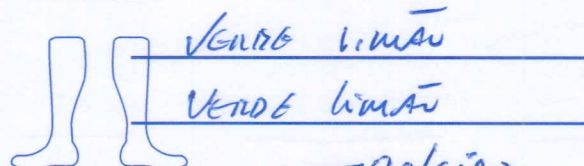 VERDE limão
VERDE limão